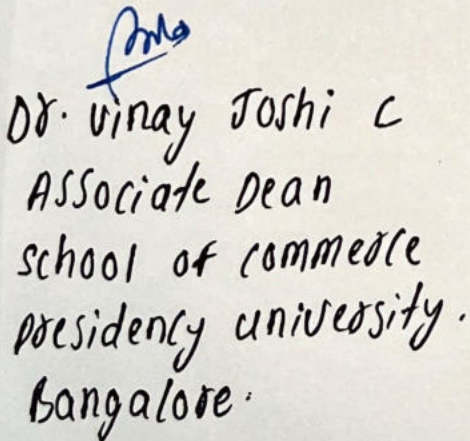 Dr. Vinay Joshi C
Associate Dean
school of commerce
presidency university.
Bangalore.